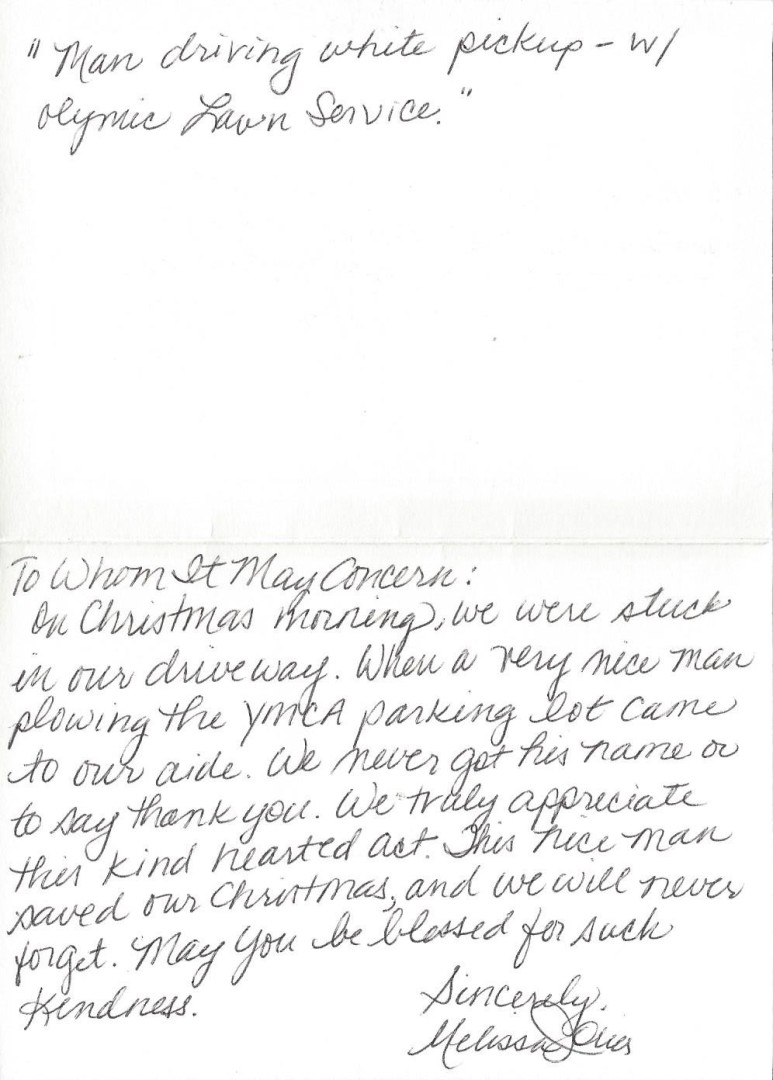 "Man driving white pickup - w/
olymic Lawn Service."
To Whom It May Concern:
On Christmas morning, we were stuck
in our driveway. When a very nice man
plowing the YMCA parking lot came
to our aide. We never got his name or
to say thank you. We truly appreciate
this kind hearted act. This nice man
saved our Christmas, and we will never
forget. May you be blessed for such
Kindness.
Sincerely,
Melissa